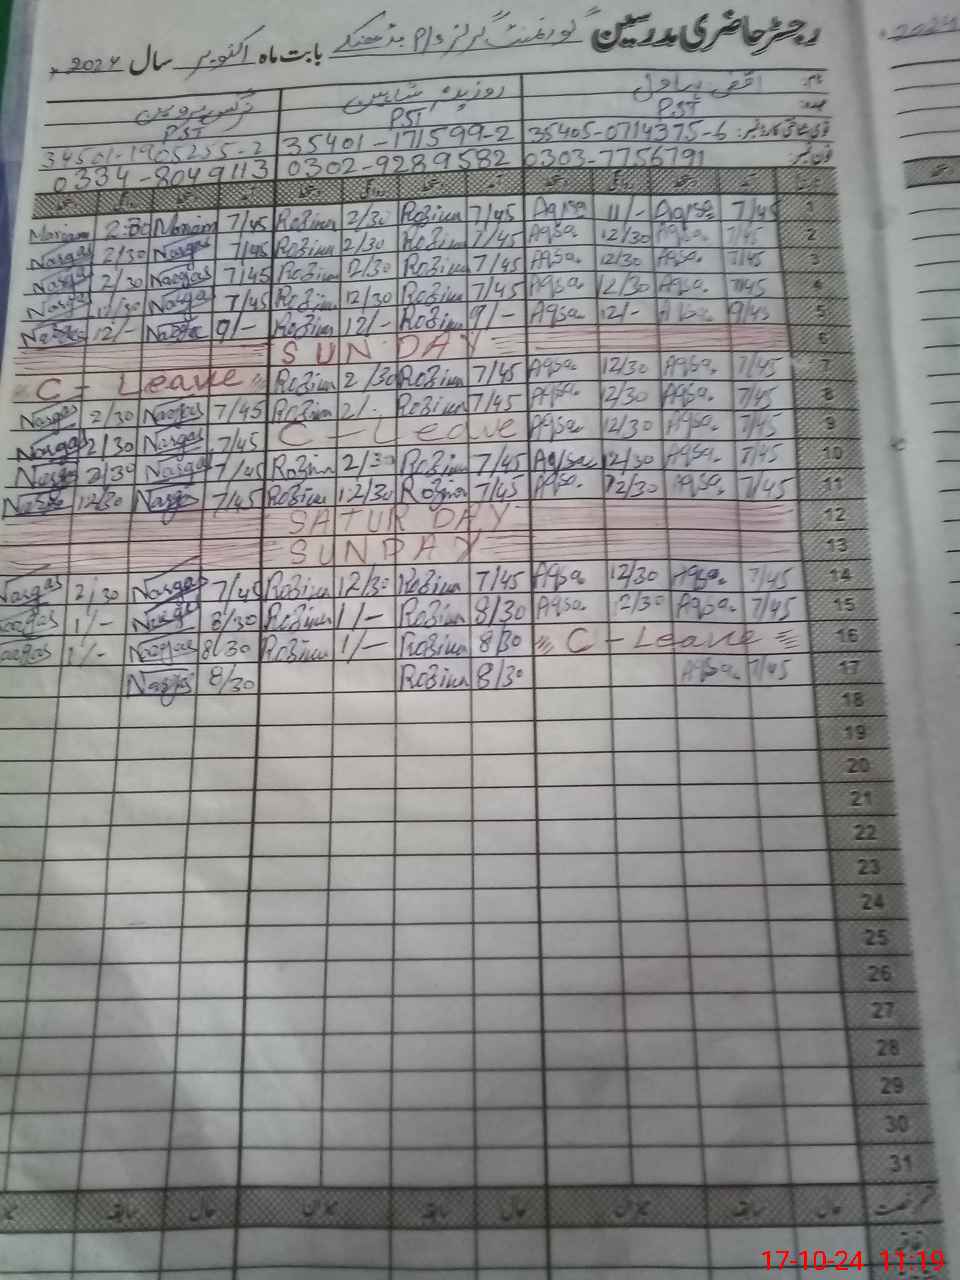 رجسٹر حاضری مدرسین گورنمنٹ گرلز P/S بابت ماہ اکتوبر سال 2024
2024
نام:
روزینہ شاہین نرگس پروین
عہدہ: PST PST PST
قومی شناختی کارڈ نمبر: 35405-0714375-6 35401-171599-2 34501-1905255-2
فون نمبر: 0303-7756791 0302-9289582 0334-8049113
Mariam 2:30 Mariam 7/45 Robina 2/30 Robina 7/45 Aqsa 11/- Aqsa 7/45 1
Nargas 2/30 Nargas 7/45 Robina 2/30 Robina 7/45 Aqsa 12/30 Aqsa 7/45 2
Nargas 2/30 Nargas 7/45 Robina 2/30 Robina 7/45 Aqsa 12/30 Aqsa 7/45 3
Nargas 12/30 Nargas 7/45 Robina 12/30 Robina 7/45 Aqsa 12/30 Aqsa 7/45 4
Nargas 12/- Nargas 9/- Robina 12/- Robina 9/- Aqsa 12/- Aqsa 9/45 5
SUNDAY 6
C - Leave Robina 2/30 Robina 7/45 Aqsa 12/30 Aqsa 7/45 7
Nargas 2/30 Nargas 7/45 Robina 2/- Robina 7/45 Aqsa 12/30 Aqsa 7/45 8
Nargas 2/30 Nargas 7/45 C - Leave Aqsa 12/30 Aqsa 7/45 9
Nargas 2/30 Nargas 7/45 Robina 2/30 Robina 7/45 Aqsa 12/30 Aqsa 7/45 10
Nargas 12/30 Nargas 7/45 Robina 12/30 Robina 7/45 Aqsa 12/30 Aqsa 7/45 11
SATURDAY 12
SUNDAY 13
Nargas 2/30 Nargas 7/45 Robina 12/30 Robina 7/45 Aqsa 12/30 Aqsa 7/45 14
Nargas 1/- Nargas 8/30 Robina 1/- Robina 8/30 Aqsa 12/30 Aqsa 7/45 15
Nargas 1/- Nargas 8/30 Robina 1/- Robina 8/30 C - Leave 16
Nargas 8/30 Robina 8/30 Aqsa 7/45 17
18
19
20
21
22
23
24
25
26
27
28
29
30
31
قسم رخصت حال سابقہ میزان حال سابقہ میزان حال سابقہ
اتفاقیہ
17-10-24 11:19